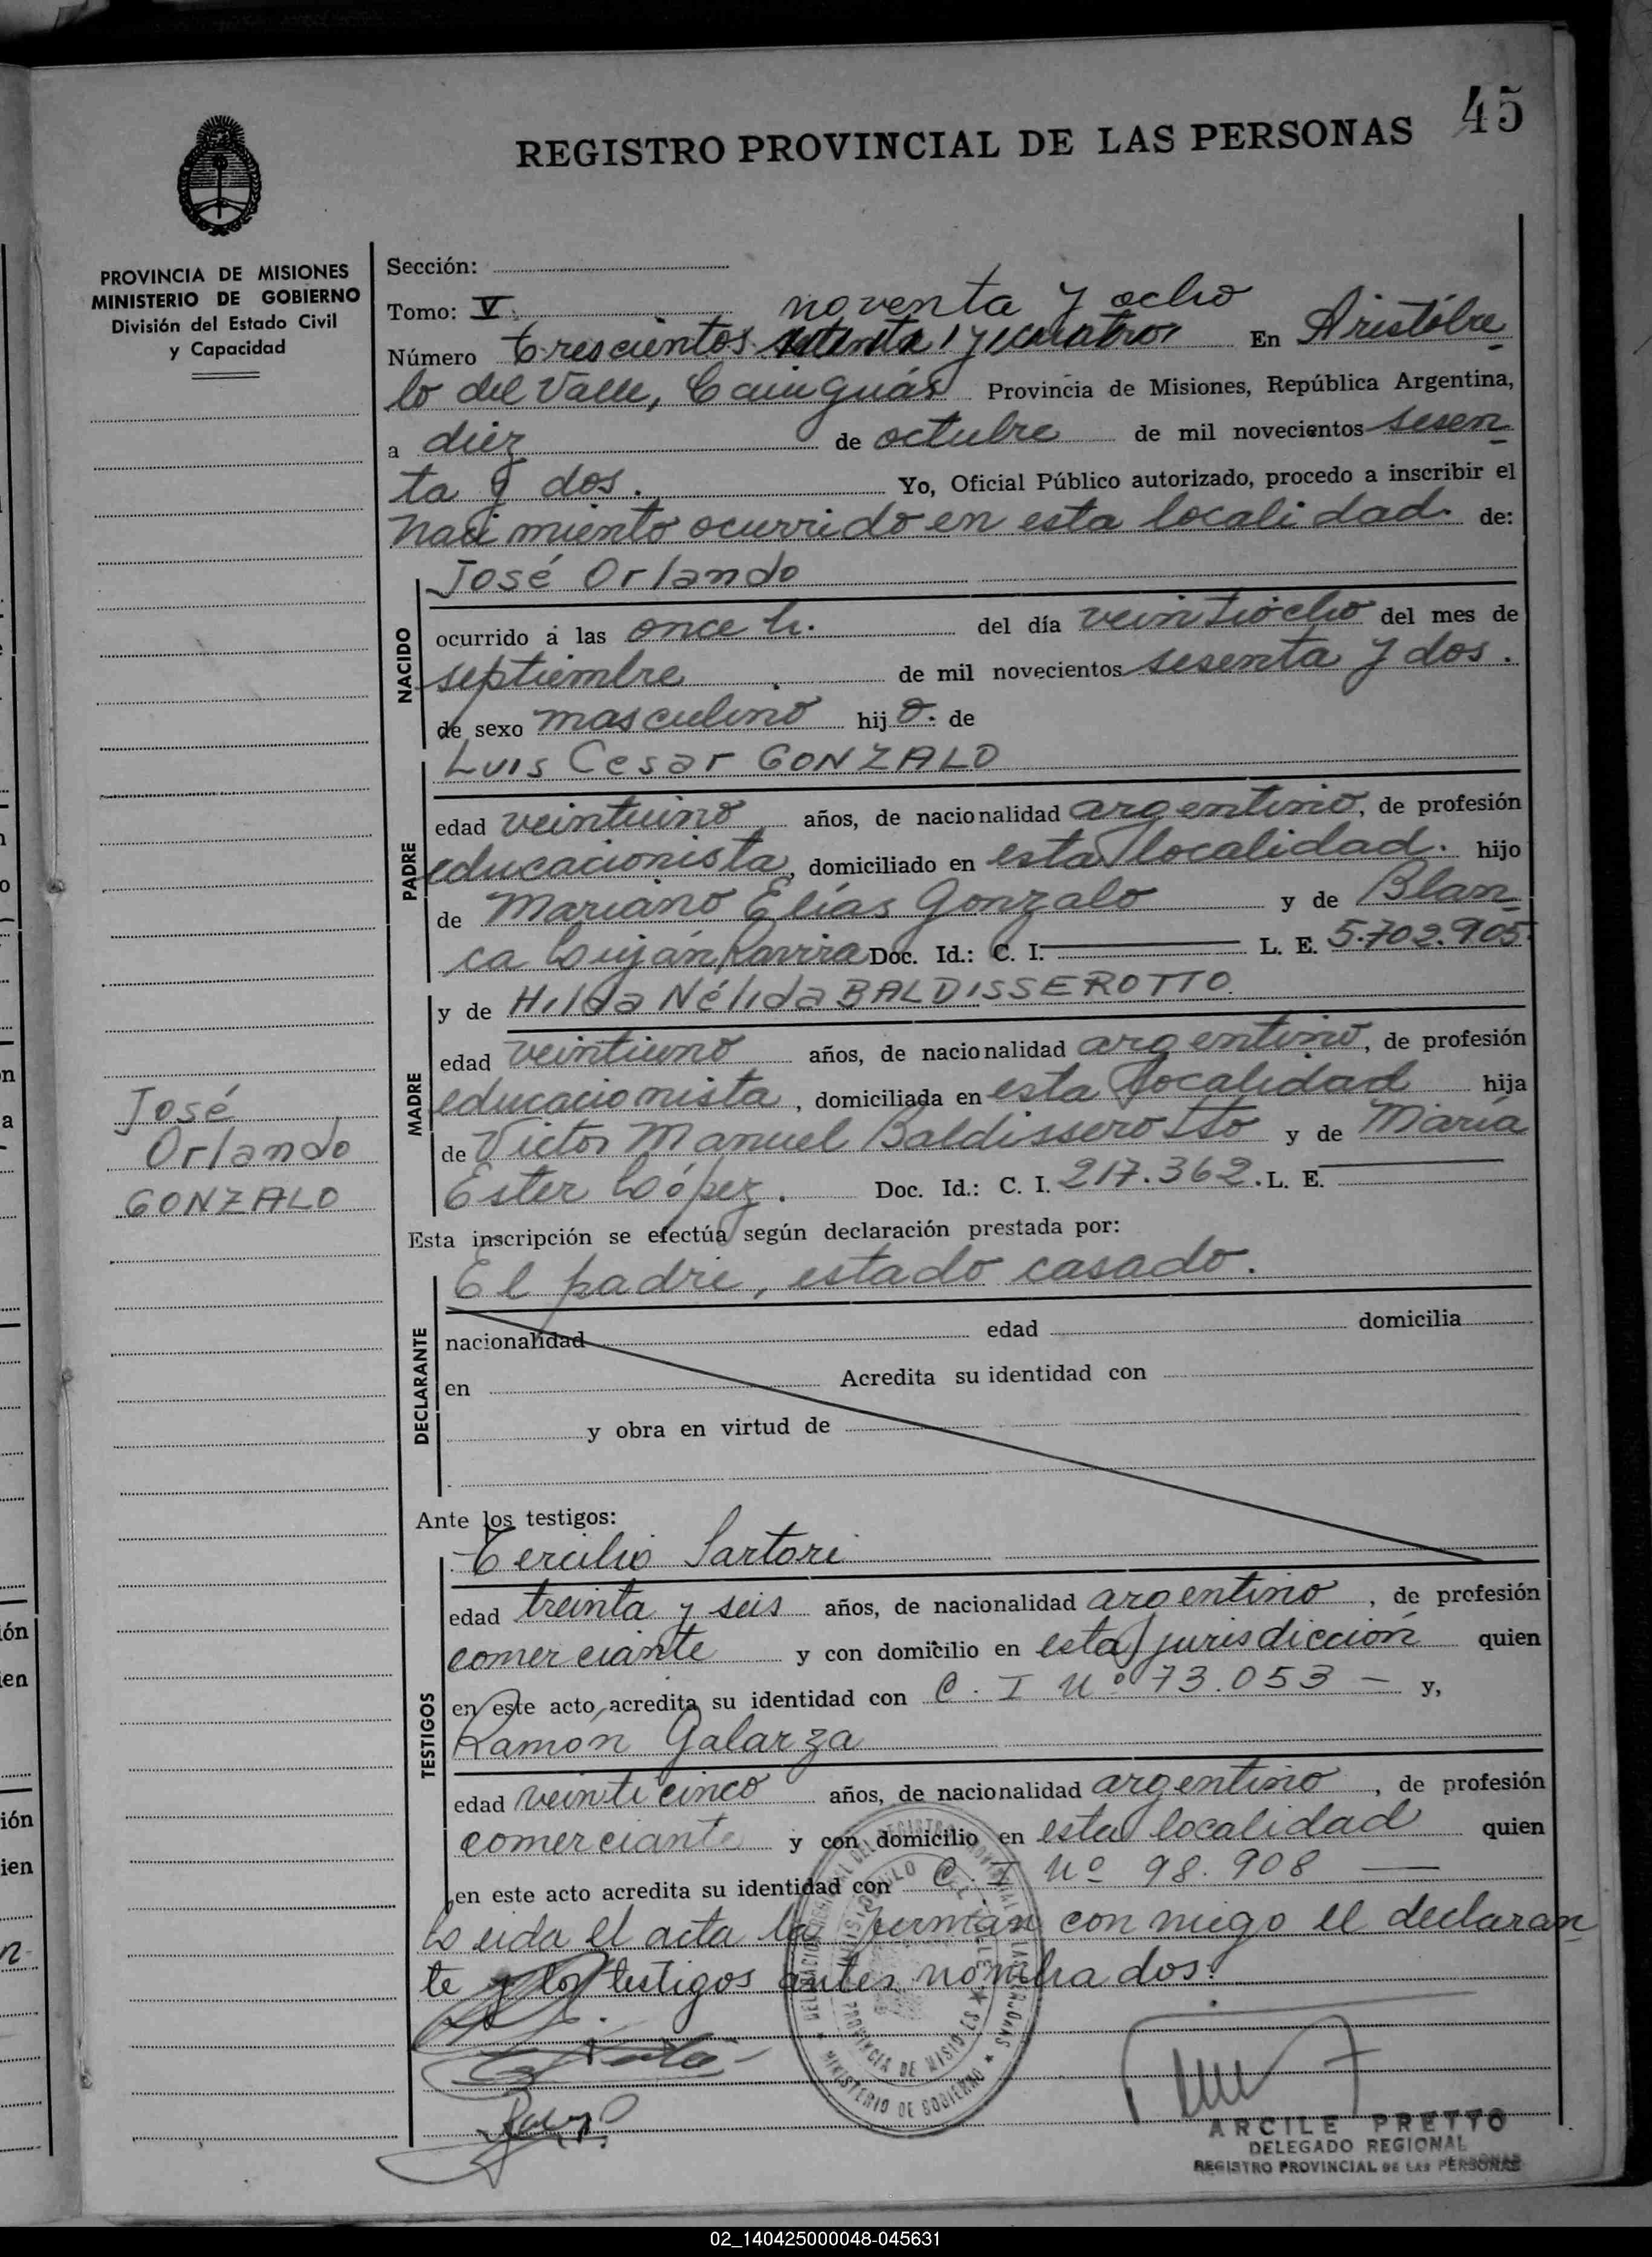 45
REGISTRO PROVINCIAL DE LAS PERSONAS
PROVINCIA DE MISIONES
MINISTERIO DE GOBIERNO
División del Estado Civil
y Capacidad
José
Orlando
GONZALO
Sección:
Tomo: V.
noventa y ocho
Número Trescientos setenta y cuatro En Aristóbu
lo del Valle, Cainguás Provincia de Misiones, República Argentina,
a diez de octubre de mil novecientos sesen
ta y dos. Yo, Oficial Público autorizado, procedo a inscribir el
nacimiento ocurrido en esta localidad. de:
NACIDO
José Orlando
ocurrido a las once h. del día veintiocho del mes de
septiembre de mil novecientos sesenta y dos.
de sexo masculino hij o. de
PADRE
Luis Cesar GONZALO
edad veintiuno años, de nacionalidad argentino, de profesión
educacionista, domiciliado en esta localidad. hijo
de Mariano Elías Gonzalo y de Blan
ca Luján Doc. Id.: C. I. L. E. 5.702.905
MADRE
y de Hilda Nélida BALDISSEROTTO.
edad veintiuno años, de nacionalidad argentino, de profesión
educacionista, domiciliada en esta localidad hija
de Victor Manuel Baldisserotto y de María
Ester López. Doc. Id.: C. I. 217.362. L. E.
Esta inscripción se efectúa según declaración prestada por:
DECLARANTE
El padre, estado casado.
nacionalidad edad domicilia
en Acredita su identidad con
y obra en virtud de
Ante los testigos:
TESTIGOS
Tercilio Sartori
edad treinta y seis años, de nacionalidad argentino, de profesión
comerciante y con domicilio en esta jurisdicción quien
en este acto acredita su identidad con C. I Nº 73.053 — y,
Ramón Galarza
edad veinticinco años, de nacionalidad argentino, de profesión
comerciante y con domicilio en esta localidad quien
en este acto acredita su identidad con C. I Nº 98.908 —
Leida el acta la firman con migo el declaran
te y los testigos antes nombrados.
PROVINCIA DE MISIONES
MINISTERIO DE GOBIERNO
ARCILE PRETTO
DELEGADO REGIONAL
REGISTRO PROVINCIAL DE LAS PERSONAS
02_140425000048-045631